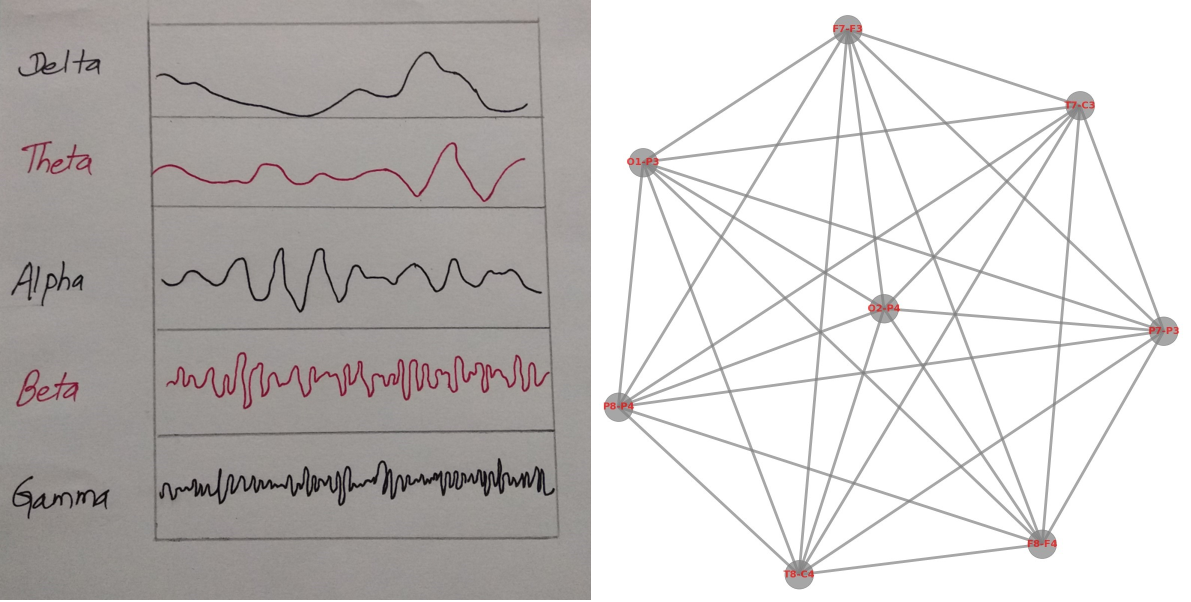 Delta
Theta
Alpha
Beta
Gamma
F7-F3
T7-C3
O1-P3
O2-P4
P7-P3
P8-P4
F8-F4
T8-C4